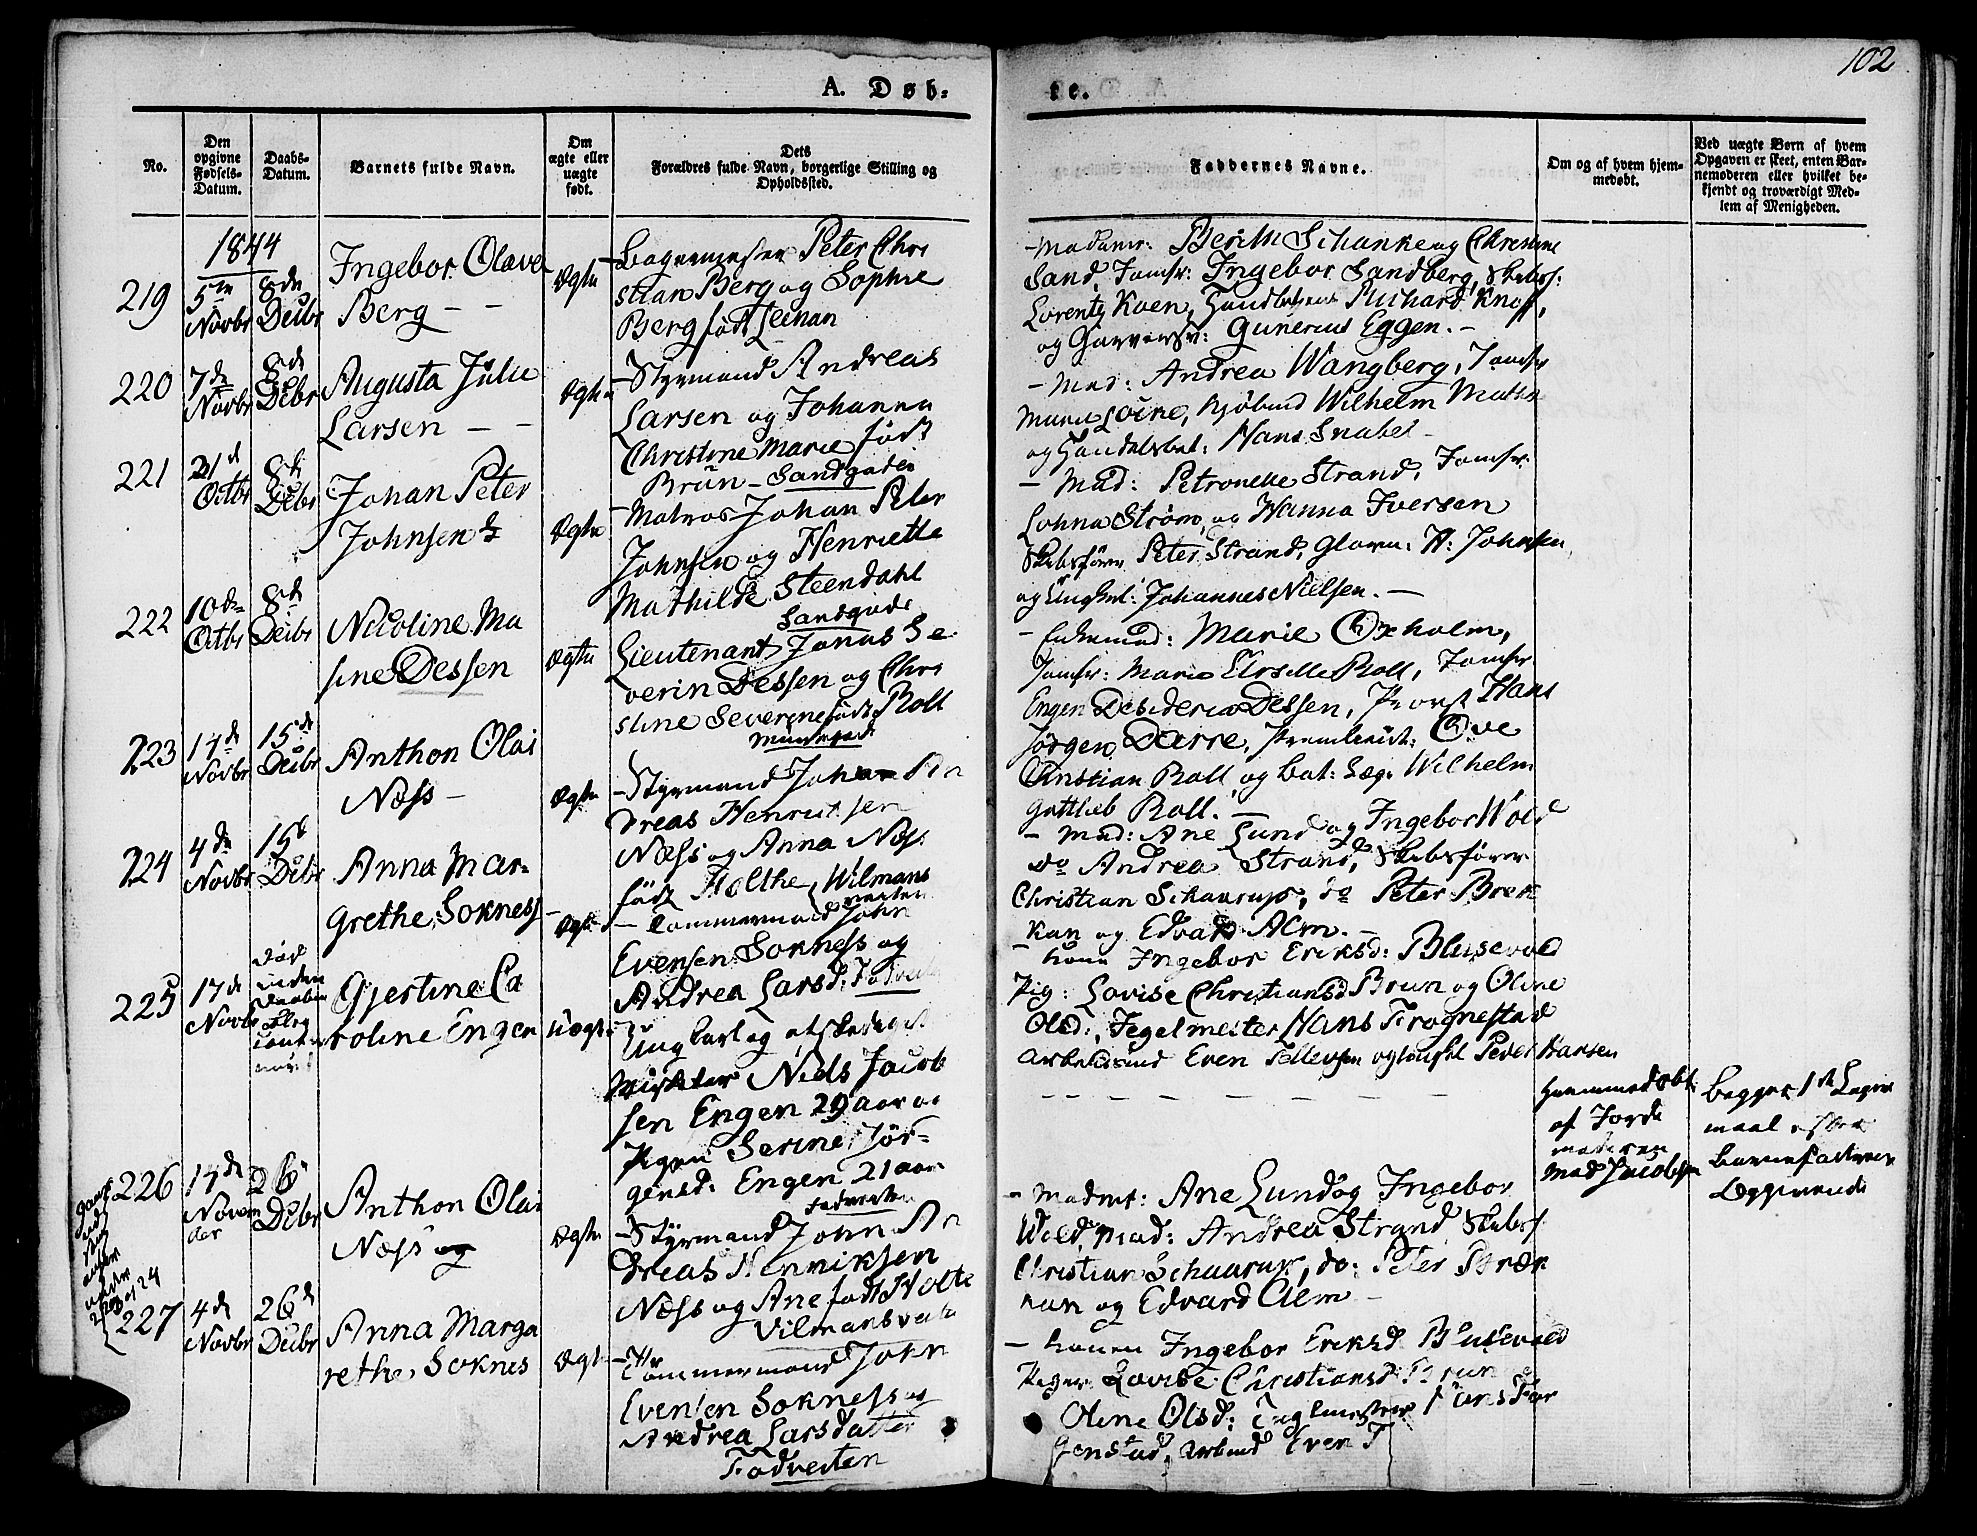 102
A. Døb-
te.
No.
Den
opgivne
Fødsels-
Datum.
Daabs-
Datum.
Barnets fulde Navn.
Om
ægte eller
uægte
født.
Dets
Forældres fulde Navn, borgerlige Stilling og
Opholdssted.
Faddernes Navne.
Om og af hvem hjem-
medøbt.
Ved uægte Børn af hvem
Opgaven er skeet, enten Bar-
nemoderen eller hvilket be-
kjendt og troværdigt Med-
lem af Menigheden.
1844
219
5te
Novbr
8de
Decbr
Ingebor Olave
Berg - -
Ægte
Bagermester Peter Chri
stian Berg og Sophie
Berg født Leinan
- Madamr: Berith Schanke og Christine
Sand, Jomfr: Ingebor Sandberg, Skibsf:
Lorentz Koen, Richard Knoff,
og Garversv: Gunerius Eggen. -
220
7de
Novbr
8de
Decbr
Augusta Julie
Larsen - -
Ægte
- Styrmand Andreas
Larsen og Johanna
Christine Marie født
Brün - Sandgaden
- Mad: Andrea Wangberg, Jomfr
Marie Loene, Kjøbmd Wilhelm
og Handelsbet: Hans Snabel -
221
21d
Octbr
8de
Decbr
Johan Peter
Johnsen
Ægte
- Matros Johan Peter
Johnsen og Henriette
Mathilde Steendahl
Sandgade
- Mad: Petronelle Strand, Jomfr:
Lohna Strøm, og Hanna Iversen
Skibsfører Peter Strand, H: Johnsen,
og Ungkrl: Johannes Nielsen. -
222
10de
Octbr
8de
Decbr
Nicoline Ma
sine Dessen
Ægte
Lieutenant Jonas Se
verin Dessen og Chri
stine Severine født Roll
Munkegade
- Enkemad: Marie Oxholm,
Jomfr: Marie Ursille Roll, Jomfr
Engen Desideria Dessen, Provst Hans
Jørgen Darre, Premlieut: Ove
Christian Roll, og Bat: Læge Wilhelm
Gottlieb Roll. -
223
14de
Novbr
15de
Decbr
Anthon Olai
Næss -
Ægte
- Styrmand Johan An
dreas Henricksen
Næss og Anna Næss
født Holthe, Wilmans
veiten
- Mad: Ane Lund og Ingebor Wold
do Andrea Strand, Skibsfører
Christian Schaarup, do Peter Bræk
kan og Edvard Alm. -
224
4de
Novbr
15de
Decbr
Anna Mar-
grethe, Sokness
Ægte
- Tømmermand John
Evensen Sokness og
Andrea Larsd.
- Konen Ingebor Eriksd: Blusevold
Pig: Lovise Christiansd Brun og Oline
Olsd:, Tegelmester Hans Frognestad
Arbeidsmd Even Tellevsen og Peder Hansen
225
17de
Novbr
død
inden
Daaben
Gjertine Ca
roline Engen
Uægte
Ungkarl og afskediget
Niels Jacob
sen Engen 29 aar og
Pigen Serine Jør-
gensd: Engen 21 aar
Fadveiten
Hjemmedøbt
af Jorde
moderen
Mad Jacobsen
Begges 1ste Leier
maal efter
Barnefaderens
Opgivende
226
14de
Novem
ber
26de
Decbr
Anthon Olai
Næss og
Ægte
- Styrmand John An
dreas Henriksen
Næss og Ane født Holte
Vilmansveita
- Madmr: Ane Lund og Ingebor
Wold, Mad: Andrea Strand, Skibsf.
Christian Schaarup, do: Peter Bræk
kan og Edvard Alm -
227
4de
Novbr
26de
Decbr
Anna Marga
rethe, Soknes
Ægte
- Tømmermand John
Evensen Sokness og
Andrea Larsdatter
Fadveiten
- Konen Ingebor Eriksd Blusevold
Piger Lovise Christiansd Brun
Oline Olsd: Teglmester Hans Fro
genstad, Arbmd Even T